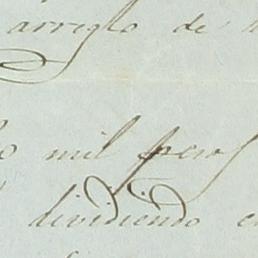 arreglo de
mil pesos
dividiendo